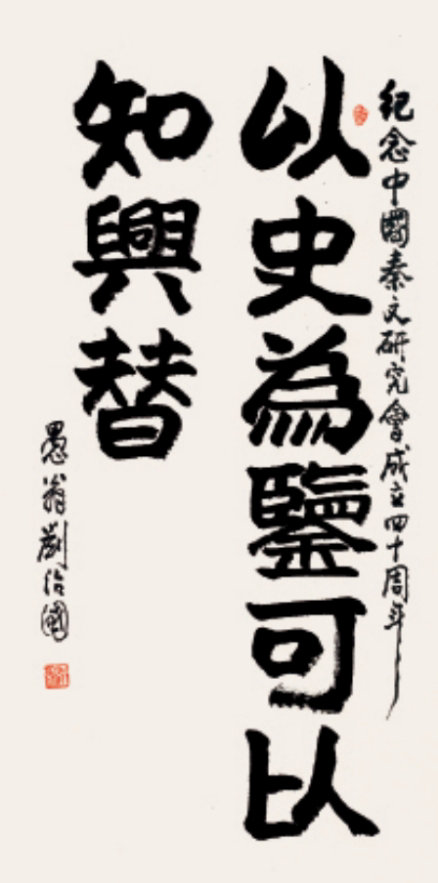 紀念中國秦文研究會成立四十周年
以史為鑒可以
知興替
愚翁劉治國